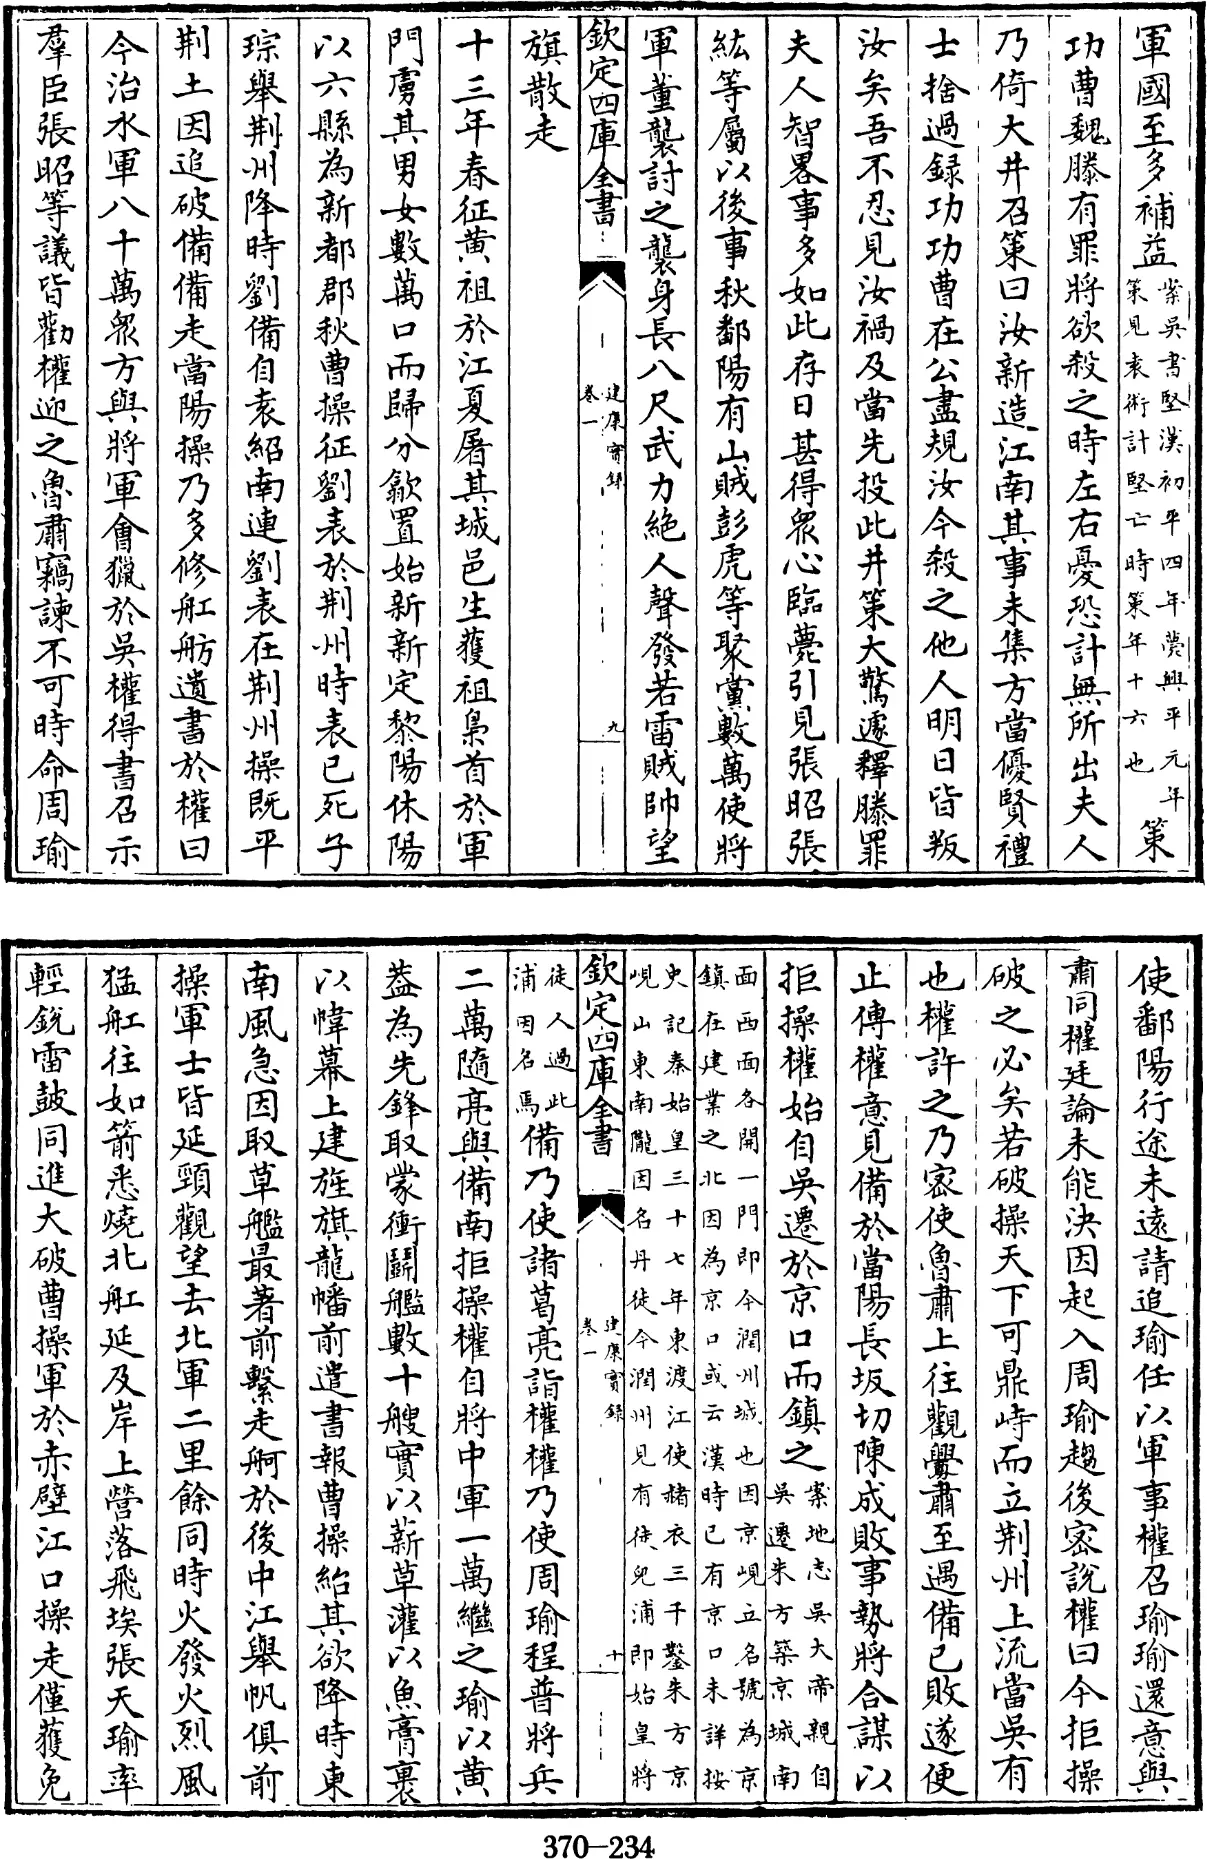 軍國至多補益案吳書堅漢初平四年薨興平元年策見袁術計堅亡時策年十六也策
功曹魏滕有罪將欲殺之時左右憂恐計無所出夫人
乃倚大井召策曰汝新造江南其事未集方當優賢禮
士捨過録功功曹在公盡規汝今殺之他人明日皆叛
汝矣吾不忍見汝禍及當先投此井策大驚遽釋滕罪
夫人智畧事多如此存日甚得衆心臨薨引見張昭張
紘等屬以後事秋鄱陽有山賊彭虎等聚黨數萬使將
軍董襲討之襲身長八尺武力絶人聲發若雷賊帥望
欽定四庫全書
建康實錄
卷一
九
旗散走
十三年春征黄祖於江夏屠其城邑生獲祖梟首於軍
門虜其男女數萬口而歸分歙置始新新定黎陽休陽
以六縣為新都郡秋曹操征劉表於荆州時表已死子
琮舉荆州降時劉備自袁紹南連劉表在荆州操既平
荆土因追破備備走當陽操乃多修舡舫遺書於權曰
今治水軍八十萬衆方與將軍會獵於吳權得書召示
羣臣張昭等議皆勸權迎之魯肅竊諫不可時命周瑜
使鄱陽行途未遠請追瑜任以軍事權召瑜瑜還意與
肅同權廷論未能決因起入周瑜趨後密説權曰今拒操
破之必矣若破操天下可鼎峙而立荆州上流當吳有
也權許之乃密使魯肅上往觀釁肅至遇備已敗遂便
止傳權意見備於當陽長坂切陳成敗事勢將合謀以
拒操權始自吳遷於京口而鎮之案地志吳大帝親自吳遷朱方築京城南
面西面各開一門即今潤州城也因京峴立名號為京
鎮在建業之北因為京口或云漢時已有京口未詳按
史記秦始皇三十七年東渡江使赭衣三千鑿朱方京
峴山東南隴因名丹徒今潤州見有徒兒浦即始皇將
欽定四庫全書
建康實錄
卷一
十
徒人過此浦因名焉備乃使諸葛亮詣權權乃使周瑜程普將兵
二萬隨亮與備南拒操權自將中軍一萬繼之瑜以黄
葢為先鋒取蒙衝鬭艦數十艘實以薪草灌以魚膏裹
以幃幕上建旌旗龍幡前遣書報曹操紿其欲降時東
南風急因取草艦最著前繫走舸於後中江舉帆俱前
操軍士皆延頸觀望去北軍二里餘同時火發火烈風
猛舡往如箭悉燒北舡延及岸上營落飛埃張天瑜率
輕銳雷鼓同進大破曹操軍於赤壁江口操走僅獲免
370-234